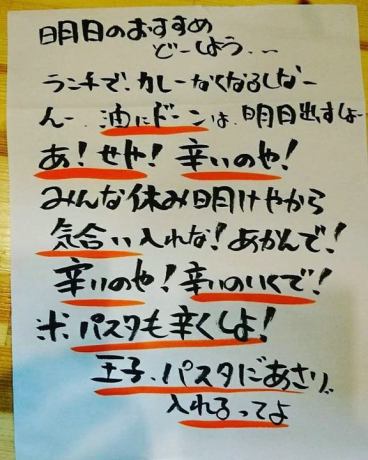 明日のおすすめ
どーしよう...
ランチで、カレーなくなるしなー
んー、油にドーンは、明日出すしよー
あ!せや!辛いのや!
みんな休み明けやから
気合い入れな!あかんで!
辛いのや!辛いのいくで!
※パスタも辛くしよ!
王子、パスタにあさり、
入れるってよ